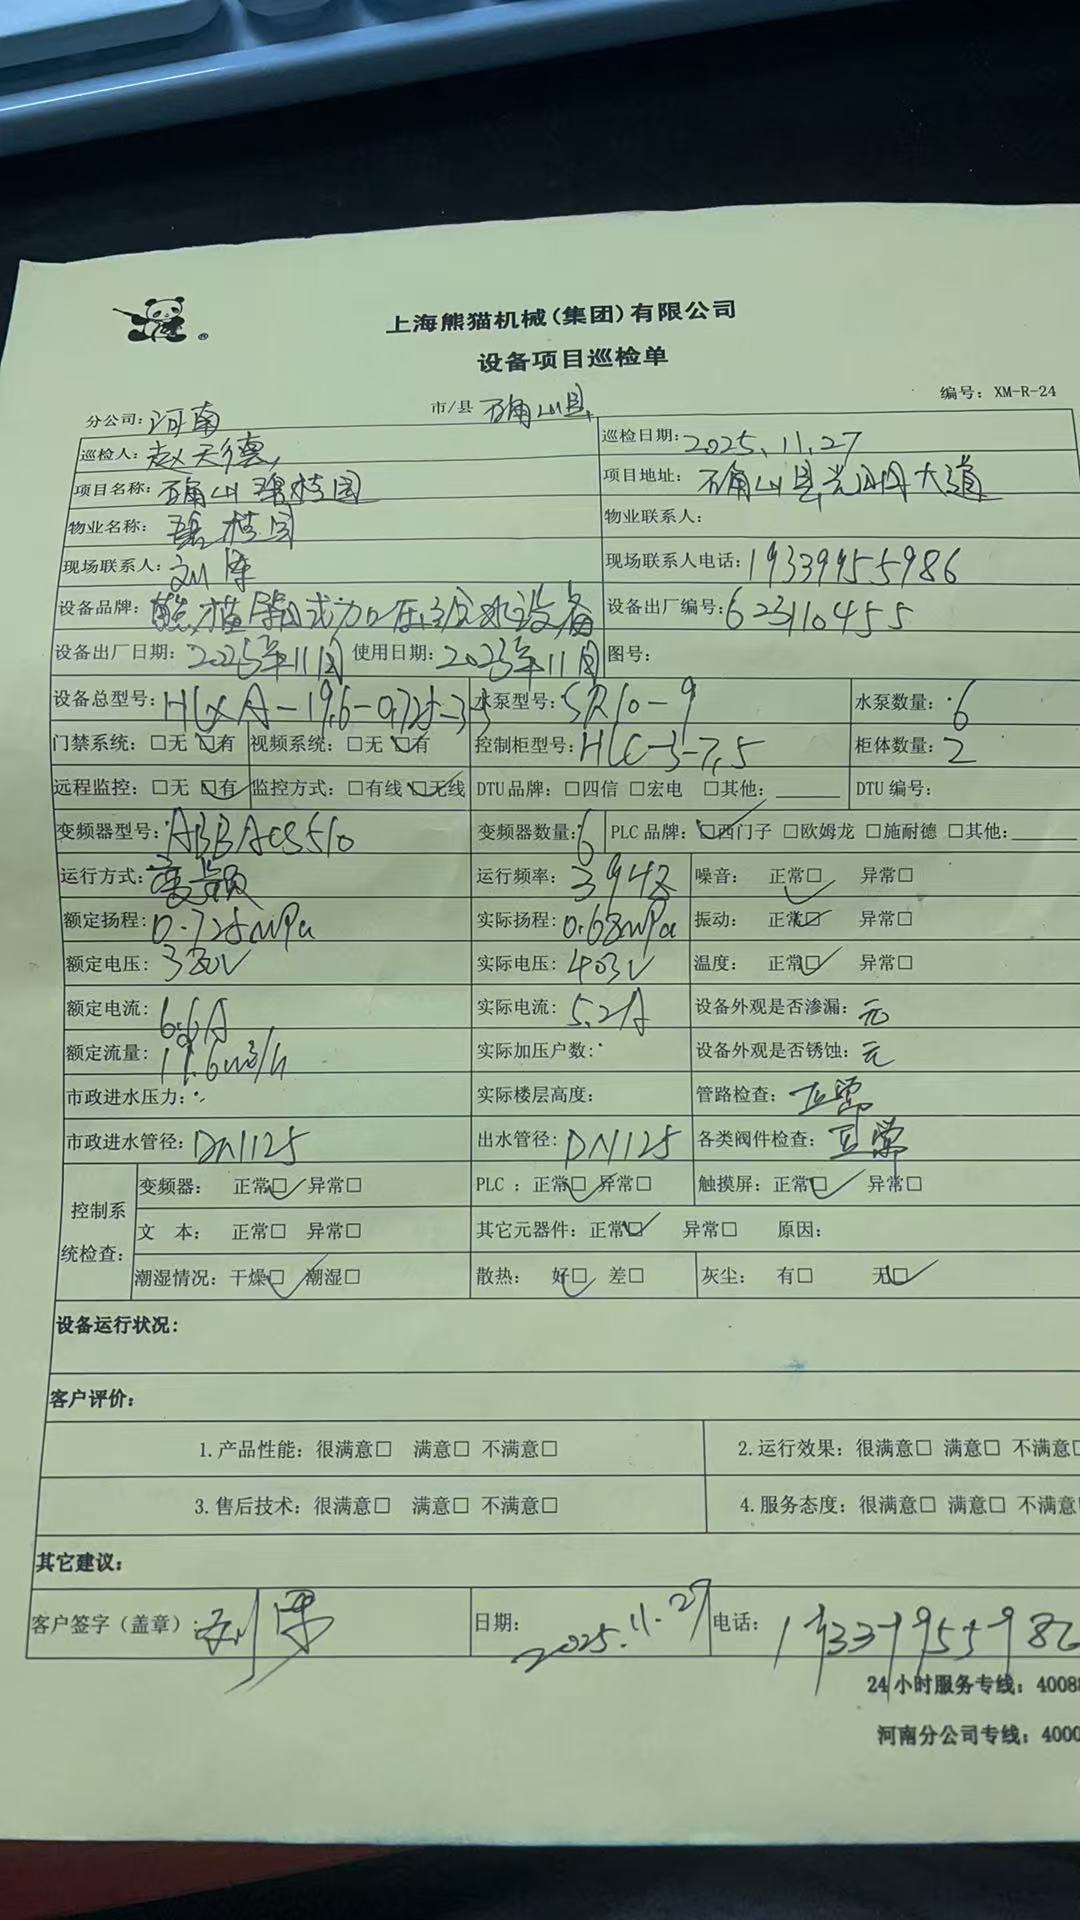 上海熊猫机械(集团)有限公司
设备项目巡检单
编号: XM-R-24
分公司: 河南 市/县 确山县
巡检人: 赵天德 巡检日期: 2025.11.27
项目名称: 确山碧桂园 项目地址: 确山县 大道
物业名称: 碧桂园 物业联系人:
现场联系人: 刘 现场联系人电话: 19339955986
设备品牌: 熊猫 式加压 水设备 设备出厂编号: 623110455
设备出厂日期: 年11月 使用日期: 2023年11月 图号:
设备总型号: 水泵型号: SR10-9 水泵数量: 6
门禁系统: □无 ☑有 视频系统: □无 ☑有 控制柜型号: HLC-3-7.5 柜体数量: 2
远程监控: □无 ☑有 监控方式: □有线 ☑无线 DTU品牌: □四信 □宏电 □其他: DTU编号:
变频器型号: ABB ACS510 变频器数量: 6 PLC品牌: ☑西门子 □欧姆龙 □施耐德 □其他:
运行方式: 变频 运行频率: 噪音: 正常☑ 异常□
额定扬程: 0.725mPa 实际扬程: 0.68mPa 振动: 正常☑ 异常□
额定电压: 380V 实际电压: 403V 温度: 正常☑ 异常□
额定电流: 6.6A 实际电流: 5.2A 设备外观是否渗漏: 无
额定流量: 19.6m3/h 实际加压户数: 设备外观是否锈蚀: 无
市政进水压力: 实际楼层高度: 管路检查: 正常
市政进水管径: DN125 出水管径: DN125 各类阀件检查: 正常
控制系统检查: 变频器: 正常☑ 异常□ PLC: 正常☑ 异常□ 触摸屏: 正常☑ 异常□
文本: 正常□ 异常□ 其它元器件: 正常☑ 异常□ 原因:
潮湿情况: 干燥☑ 潮湿□ 散热: 好☑ 差□ 灰尘: 有□ 无☑
设备运行状况:
客户评价:
1.产品性能: 很满意□ 满意□ 不满意□ 2.运行效果: 很满意□ 满意□ 不满意□
3.售后技术: 很满意□ 满意□ 不满意□ 4.服务态度: 很满意□ 满意□ 不满意
其它建议:
客户签字(盖章): 刘 日期: 2025.11.27 电话: 1933995598
24小时服务专线: 4008
河南分公司专线: 4000